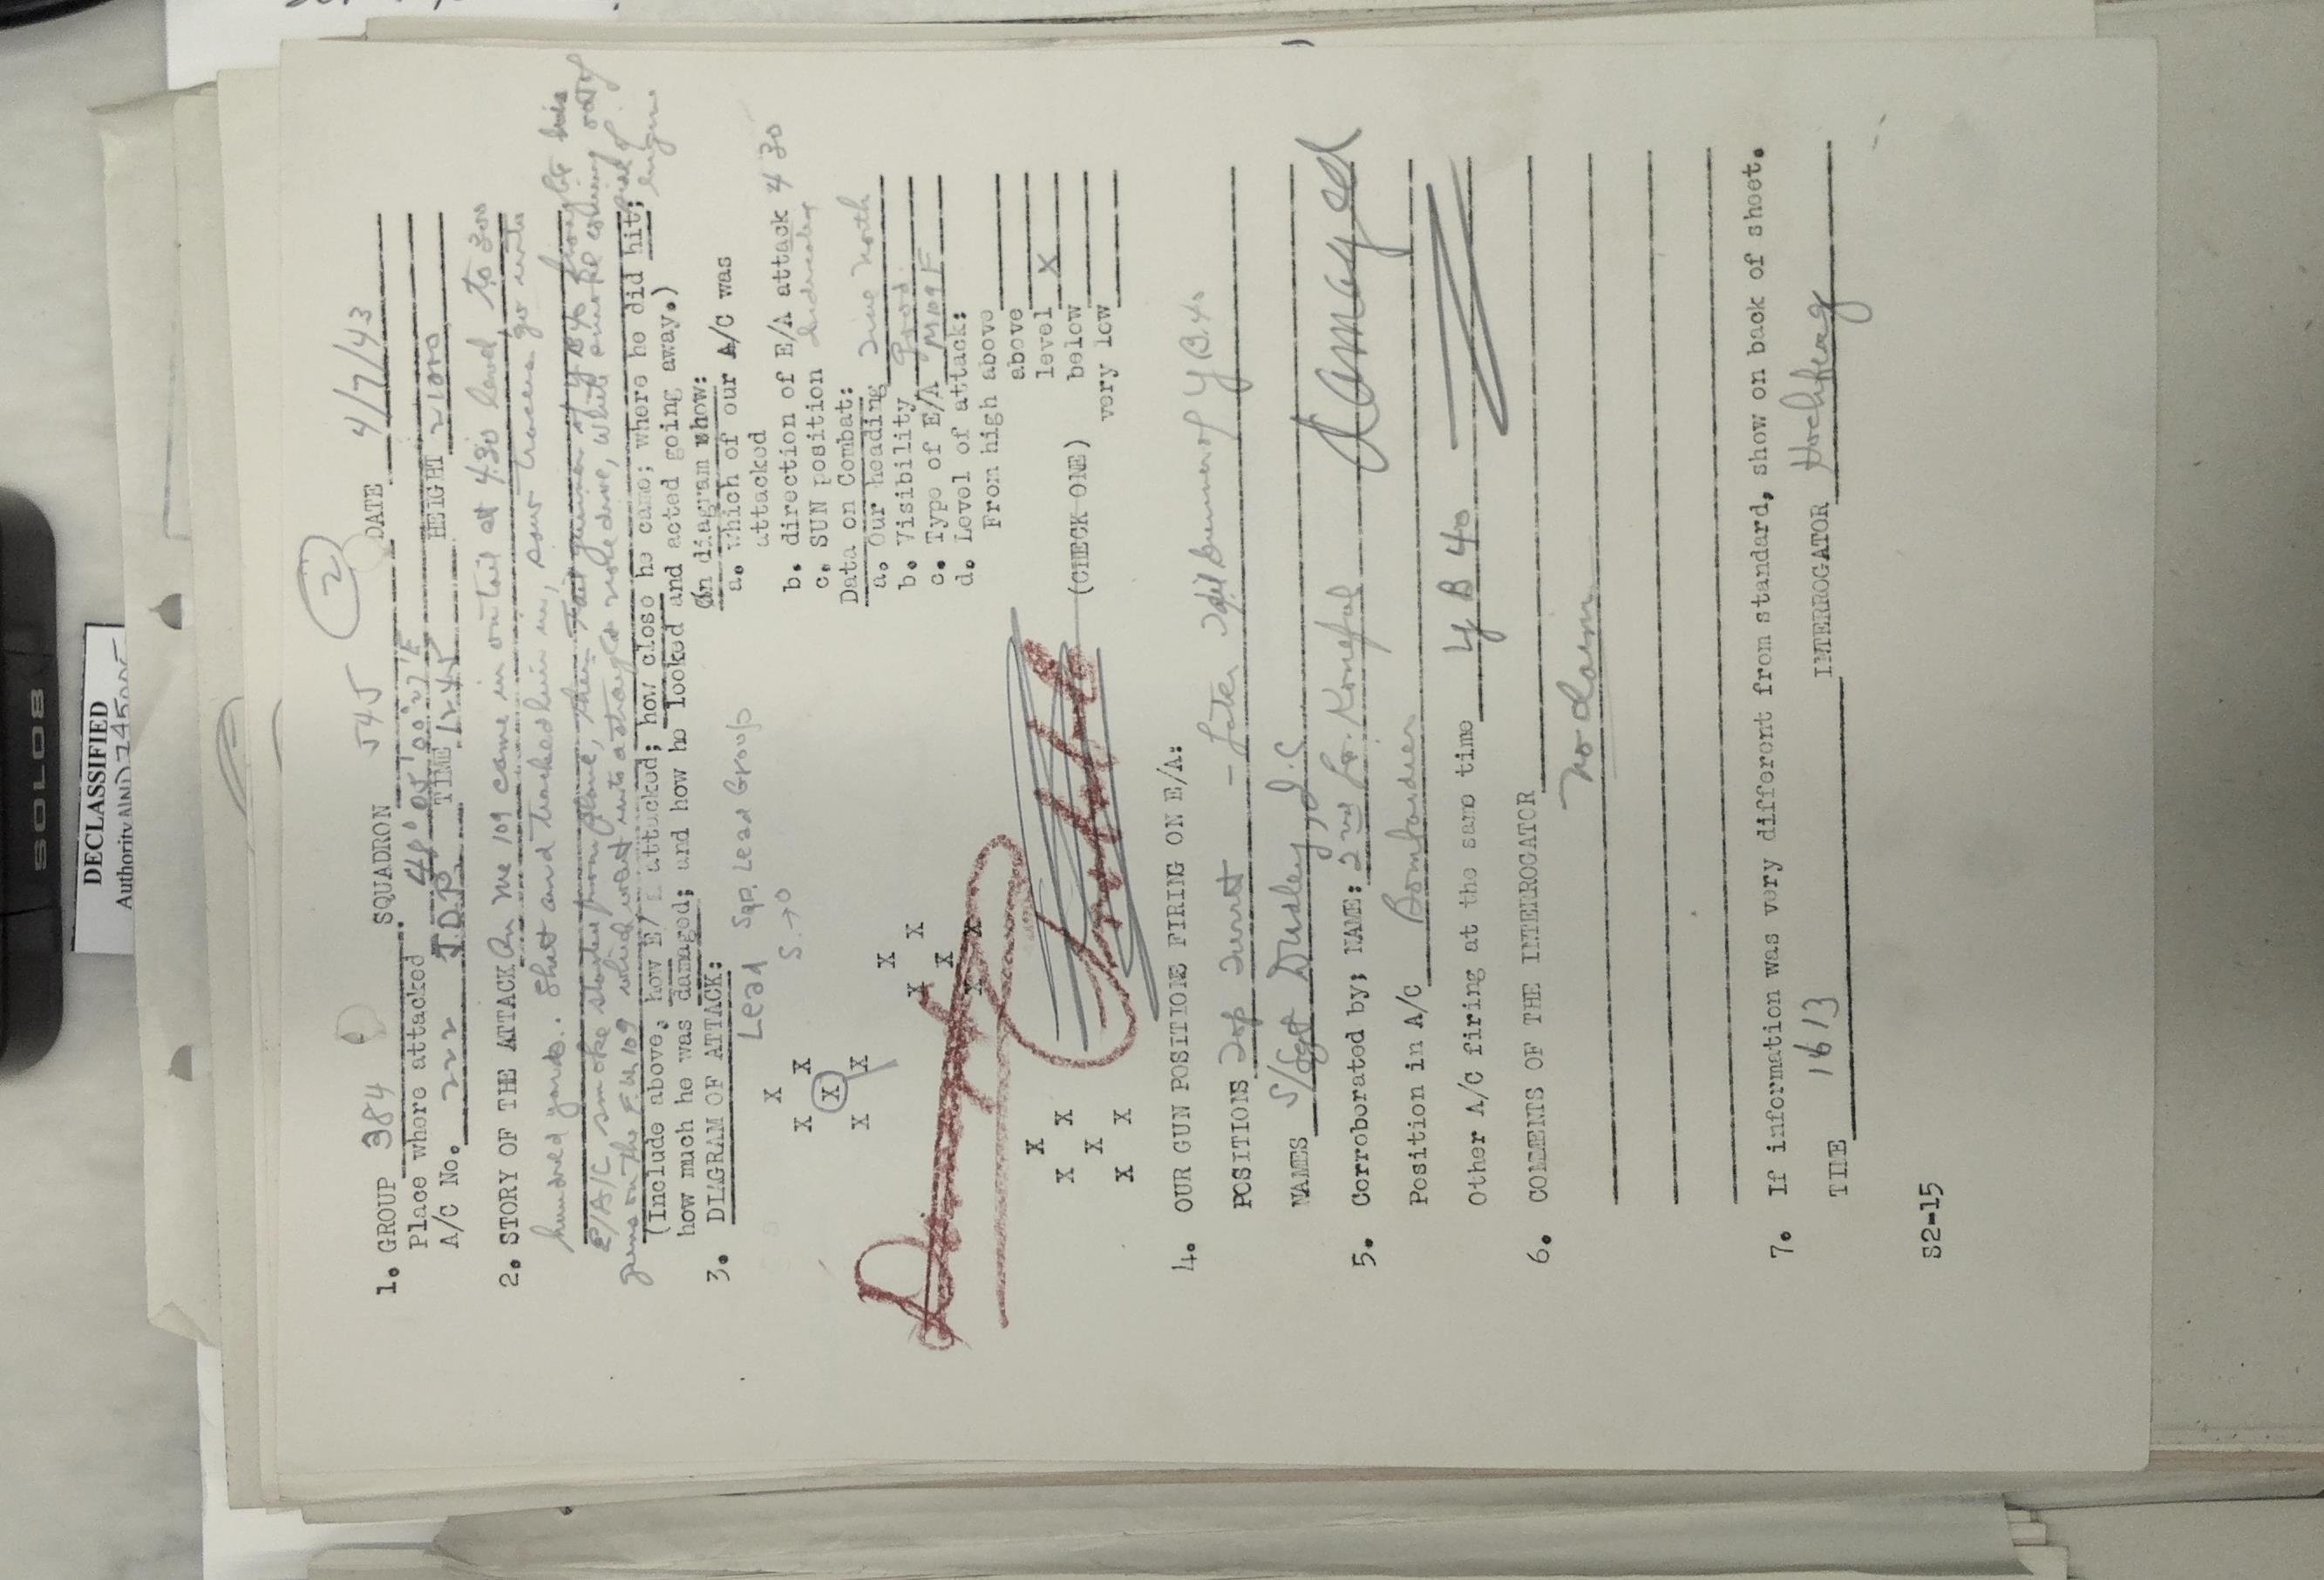 SOLO8
DECLASSIFIED
Authority NND 745005
2
1. GROUP 384 SQUADRON 545 DATE 4/7/43
Place where attacked 48°05' 00°27'E HEIGHT 21000
A/C No. 222 JDP TIME 1245
2. STORY OF THE ATTACK An Me 109 came in on tail at 4:30 level, to 300
hundred yards. Shot and tracked him in, saw tracers go into
E/A/C, smoke started from plane, then tail gunner of YB40 brought his
guns on the F.W. 109 which went into a straight nose dive, white smoke coming out of
engine
(Include above, how E/A attacked; how close he came; where he did hit;
how much he was damaged; and how he looked and acted going away.)
3. DIAGRAM OF ATTACK:
On diagram show:
a. which of our A/C was
attacked
b. direction of E/A attack 4 30
c. SUN position
Data on Combat:
a. Our heading Due North
b. Visibility Good
c. Type of E/A M109F
d. Level of attack:
From high above
above
level X
below
very low
(CHECK ONE)
Lead Sqd. Lead Group
X
X X
X
X X
X
X X
X
X X
X
X X
X
X X
4. OUR GUN POSITIONS FIRING ON E/A:
POSITIONS Top Turret - Later Tail Gunner of YB40
NAMES S/Sgt Dudley, J.C.
5. Corroborated by; NAME: 2nd Lt. Konefal
Damaged
Position in A/C Bombardier
Other A/C firing at the same time YB40
6. COMMENTS OF THE INTERROGATOR
No claim
7. If information was very different from standard, show on back of sheet.
TIME 1613 INTERROGATOR
S2-15